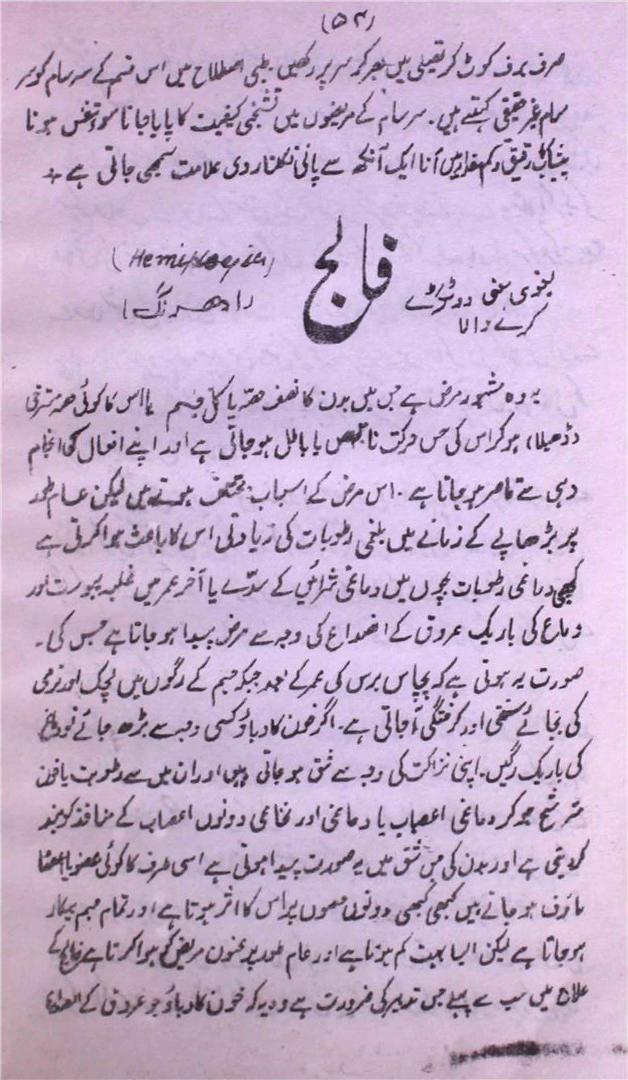 (۵۴)
صرف برف کوٹ کر تھیلی میں بھر کر سر پر رکھیں۔ طبی اصطلاح میں اس قسم کے سرسام کو سر
سام غیر حقیقی کہتے ہیں۔ سرسام کے مریضوں میں تشنجی کیفیت کا پایا جانا سوء تنفس ہونا
پیشاب رقیق و کم مقدار میں آنا ایک آنکھ سے پانی نکلنا ردی علامت سمجھی جاتی ہے +
فالج
(Hemiplegia)
(ادھرنگ)
لغوی معنی دو ٹکڑے
کرنے والا
یہ وہ مشہور مرض ہے جس میں بدن کا نصف حصہ یا کل جسم یا اس کا کوئی حصہ مسترخی
(ڈھیلا) ہو کر اس کی حس حرکت ناقص یا باطل ہو جاتی ہے اور اپنے افعال کی انجام
دہی سے قاصر ہو جاتا ہے۔ اس مرض کے اسباب مختلف ہوتے ہیں لیکن عام طور
پر بڑھاپے کے زمانے میں بلغمی رطوبات کی زیادتی اس کا باعث ہوا کرتی ہے
کبھی دماغی رطوبات بچوں میں دماغی شرائین کے سدّے یا آخر عمر میں غلبہ یبوست اور
دماغ کی باریک عروق کے انصداع کی وجہ سے مرض پیدا ہو جاتا ہے جس کی۔
صورت یہ ہوتی ہے کہ پچاس برس کی عمر کے بعد جبکہ جسم کے رگوں میں لچک اور نرمی
کی بجائے سختی اور کرختگی آ جاتی ہے۔ اگر خون کا دباؤ کسی وجہ سے بڑھ جائے تو دماغ
کی باریک رگیں۔ اپنی نزاکت کی وجہ سے شق ہو جاتی ہیں اور ان میں سے رطوبت یا خون
مترشح ہو کر دماغی اعصاب یا دماغی اور نخاعی دونوں اعصاب کے منافذ کو بند
کر دیتی ہے اور بدن کی جس شق میں یہ صورت پیدا ہوتی ہے اسی طرف کا کوئی عضو یا اعضا
ماؤف ہو جاتے ہیں کبھی کبھی دونوں حصوں پر اس کا اثر ہوتا ہے اور تمام جسم بیکار
ہو جاتا ہے لیکن ایسا بہت کم ہوتا ہے اور عام طور پر مریض کو ہوا کرتا ہے فالج کے
علاج میں سب سے پہلے جس تدبیر کی ضرورت ہے وہ یہ کہ خون کا دباؤ جو عروق کے انصداع